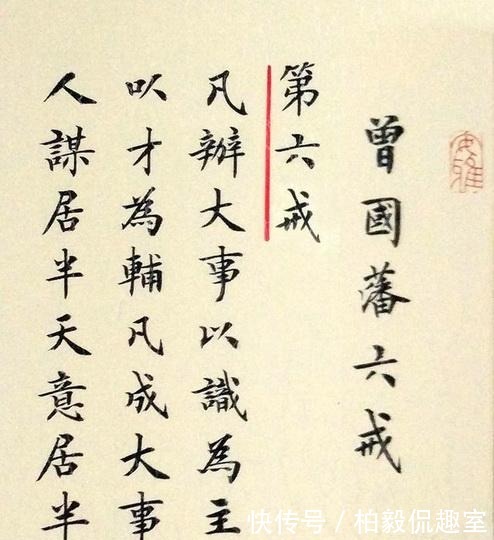 曾國藩六戒
第六戒
凡辦大事以識為主
以才為輔凡成大事
人謀居半天意居半
快传号/柏毅侃趣室